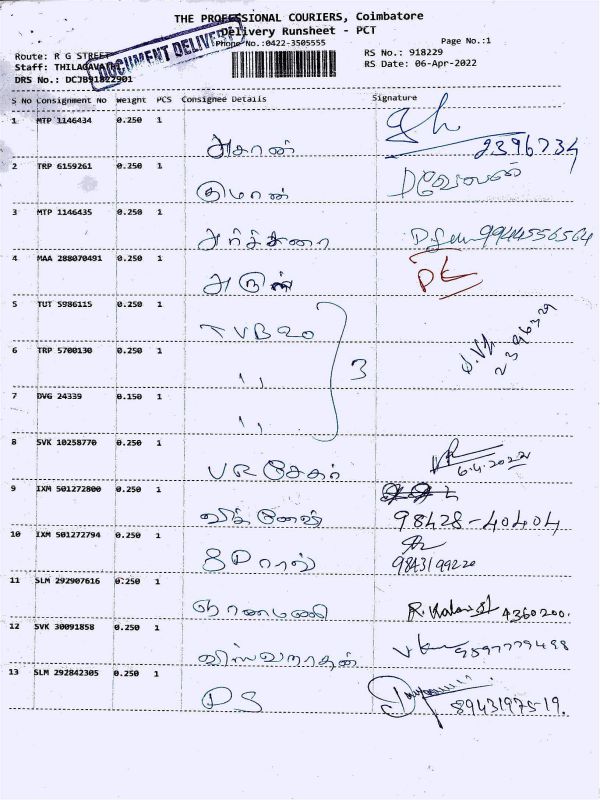 THE PROFESSIONAL COURIERS, Coimbatore
Delivery Runsheet - PCT
Phone No.:0422-3505555
Page No.:1
DOCUMENT DELIVERY
Route: R G STREET
RS No.: 918229
Staff: THILAGAVATHI
RS Date: 06-Apr-2022
DRS No.: DCJB91822901
S No Consignment No Weight PCS Consignee Details Signature
1 MTP 1146434 0.250 1
அசோன் 2396734
2 TRP 6159261 0.250 1
குமரன்
3 MTP 1146435 0.250 1
அர்ச்சனா 9944556564
4 MAA 288070491 0.250 1
அருண்
5 TUT 5986115 0.250 1
TVB 20
6 TRP 5700130 0.250 1
,, 3 2396329
7 DVG 24339 0.150 1
,,
8 SVK 10258770 0.250 1
VR சேகர் 6.4.2022
9 IXM 501272800 0.250 1
விக்னேஷ் 98428-40404
10 IXM 501272794 0.250 1
9843199220
11 SLM 292907616 0.250 1
ஞானமணி 4360200.
12 SVK 30091858 0.250 1
விஸ்வநாதன் 9597779498
13 SLM 292842305 0.250 1
DS 89431975-19.